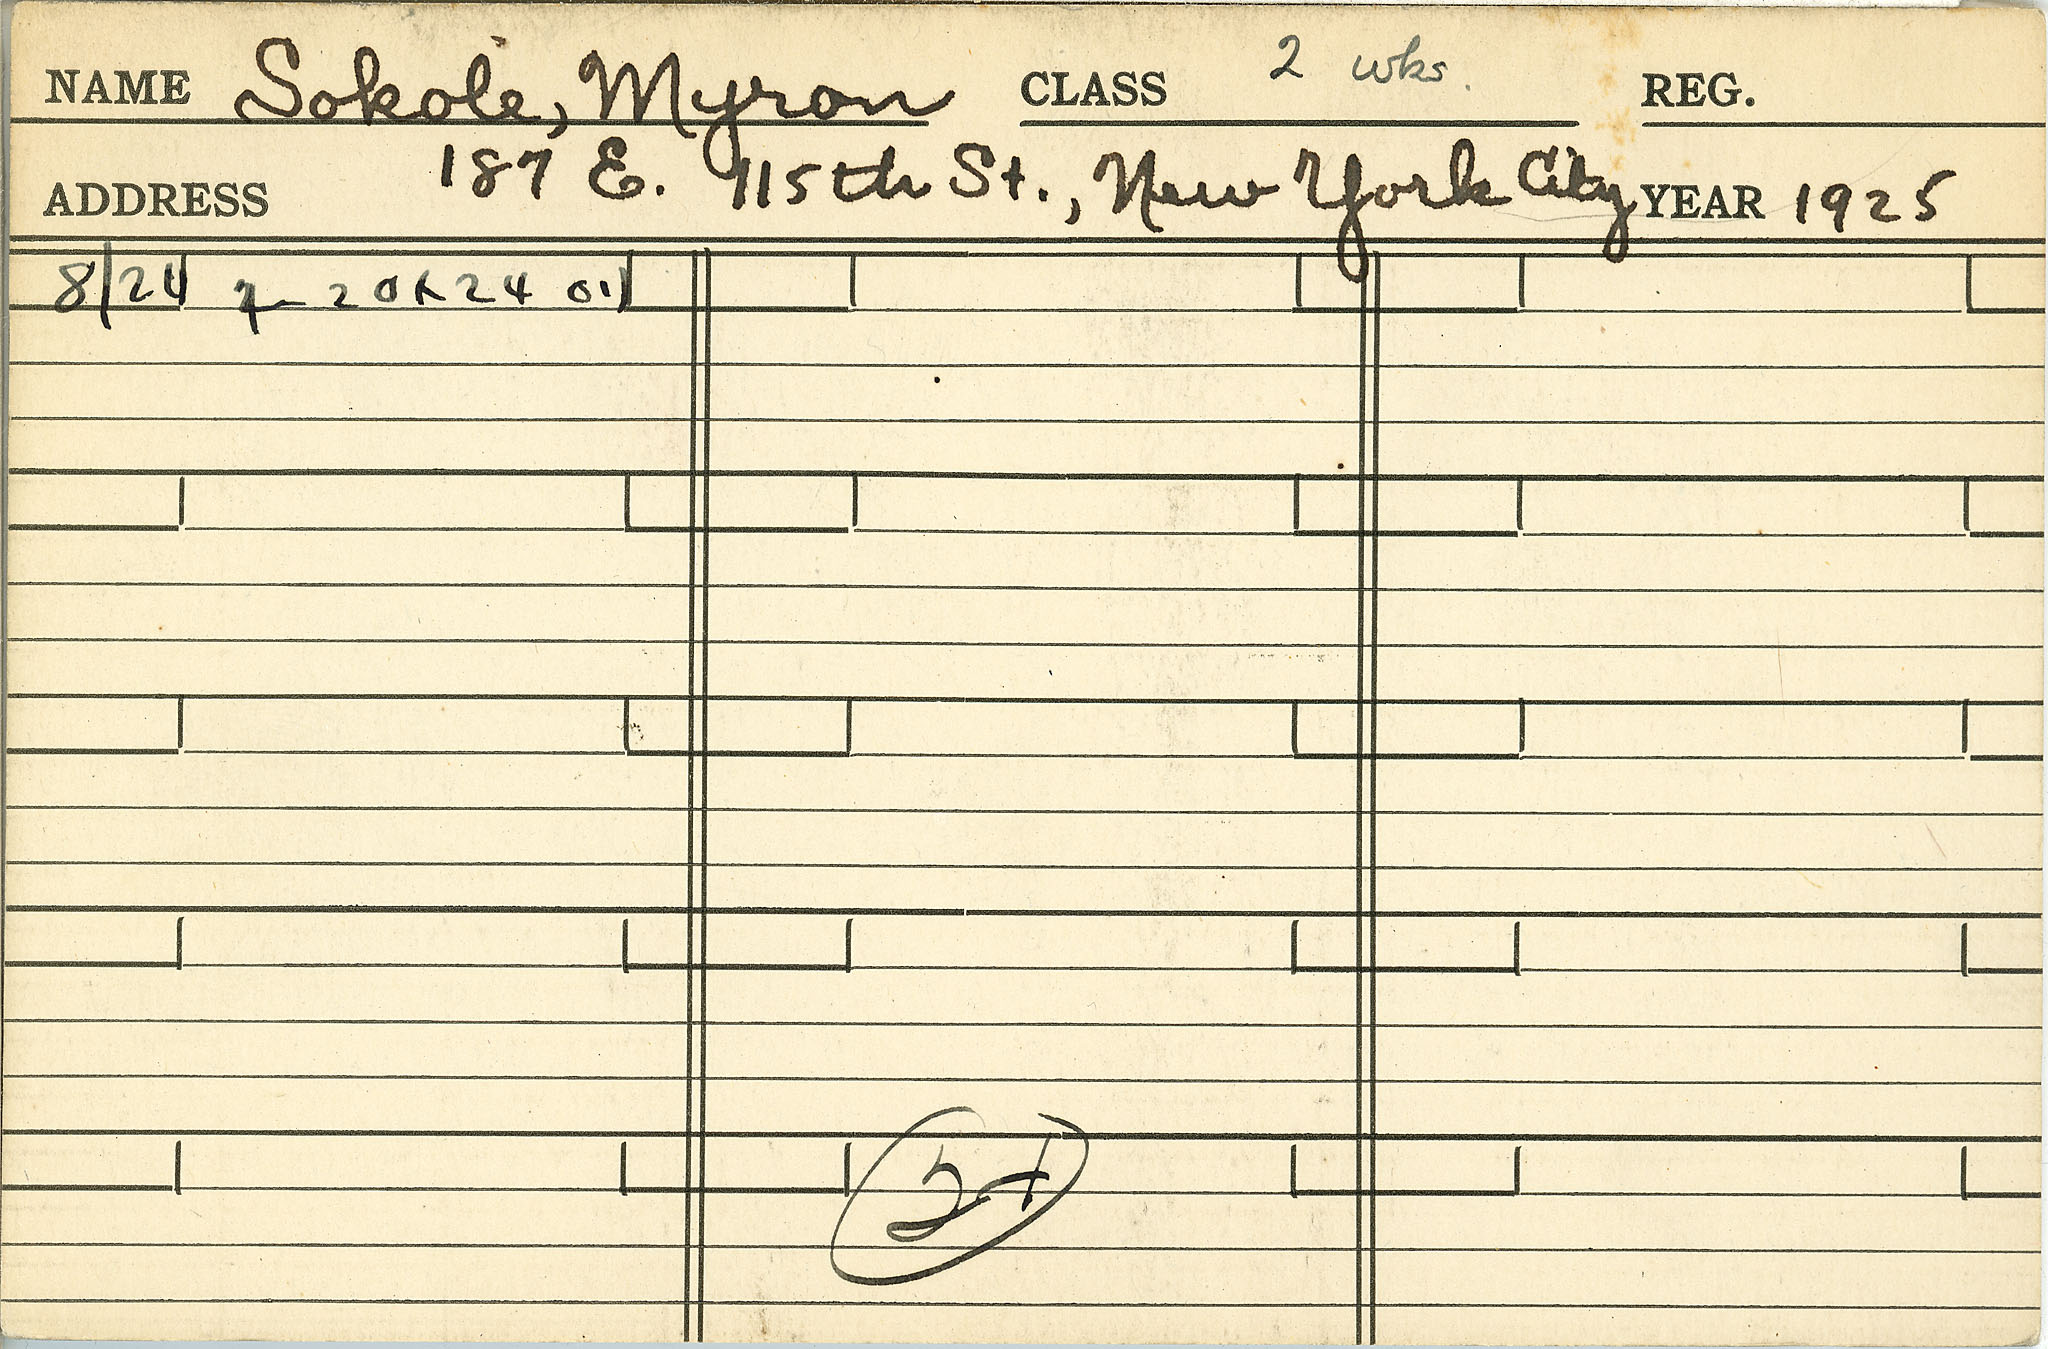 NAME Sokole, Myron CLASS 2 wks. REG.
ADDRESS 187 E. 115th St., New York City YEAR 1925
8/24 20 24 01